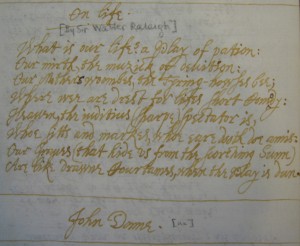 On life.
[By Sir Walter Raleigh]
What is our life? a play of passion:
Our mirth, the musick of
Our Mothers wombes, the tyring-howses bee;
Where wee are drest for lifes short
Heaven, the (sharp) spectator is,
Whoe sitts and markes, whoe ere doth doe amis:
Our Graves (that hide us from the Sunn)
Are like drawne Courtaines, when the play is dun.
John Donne. [